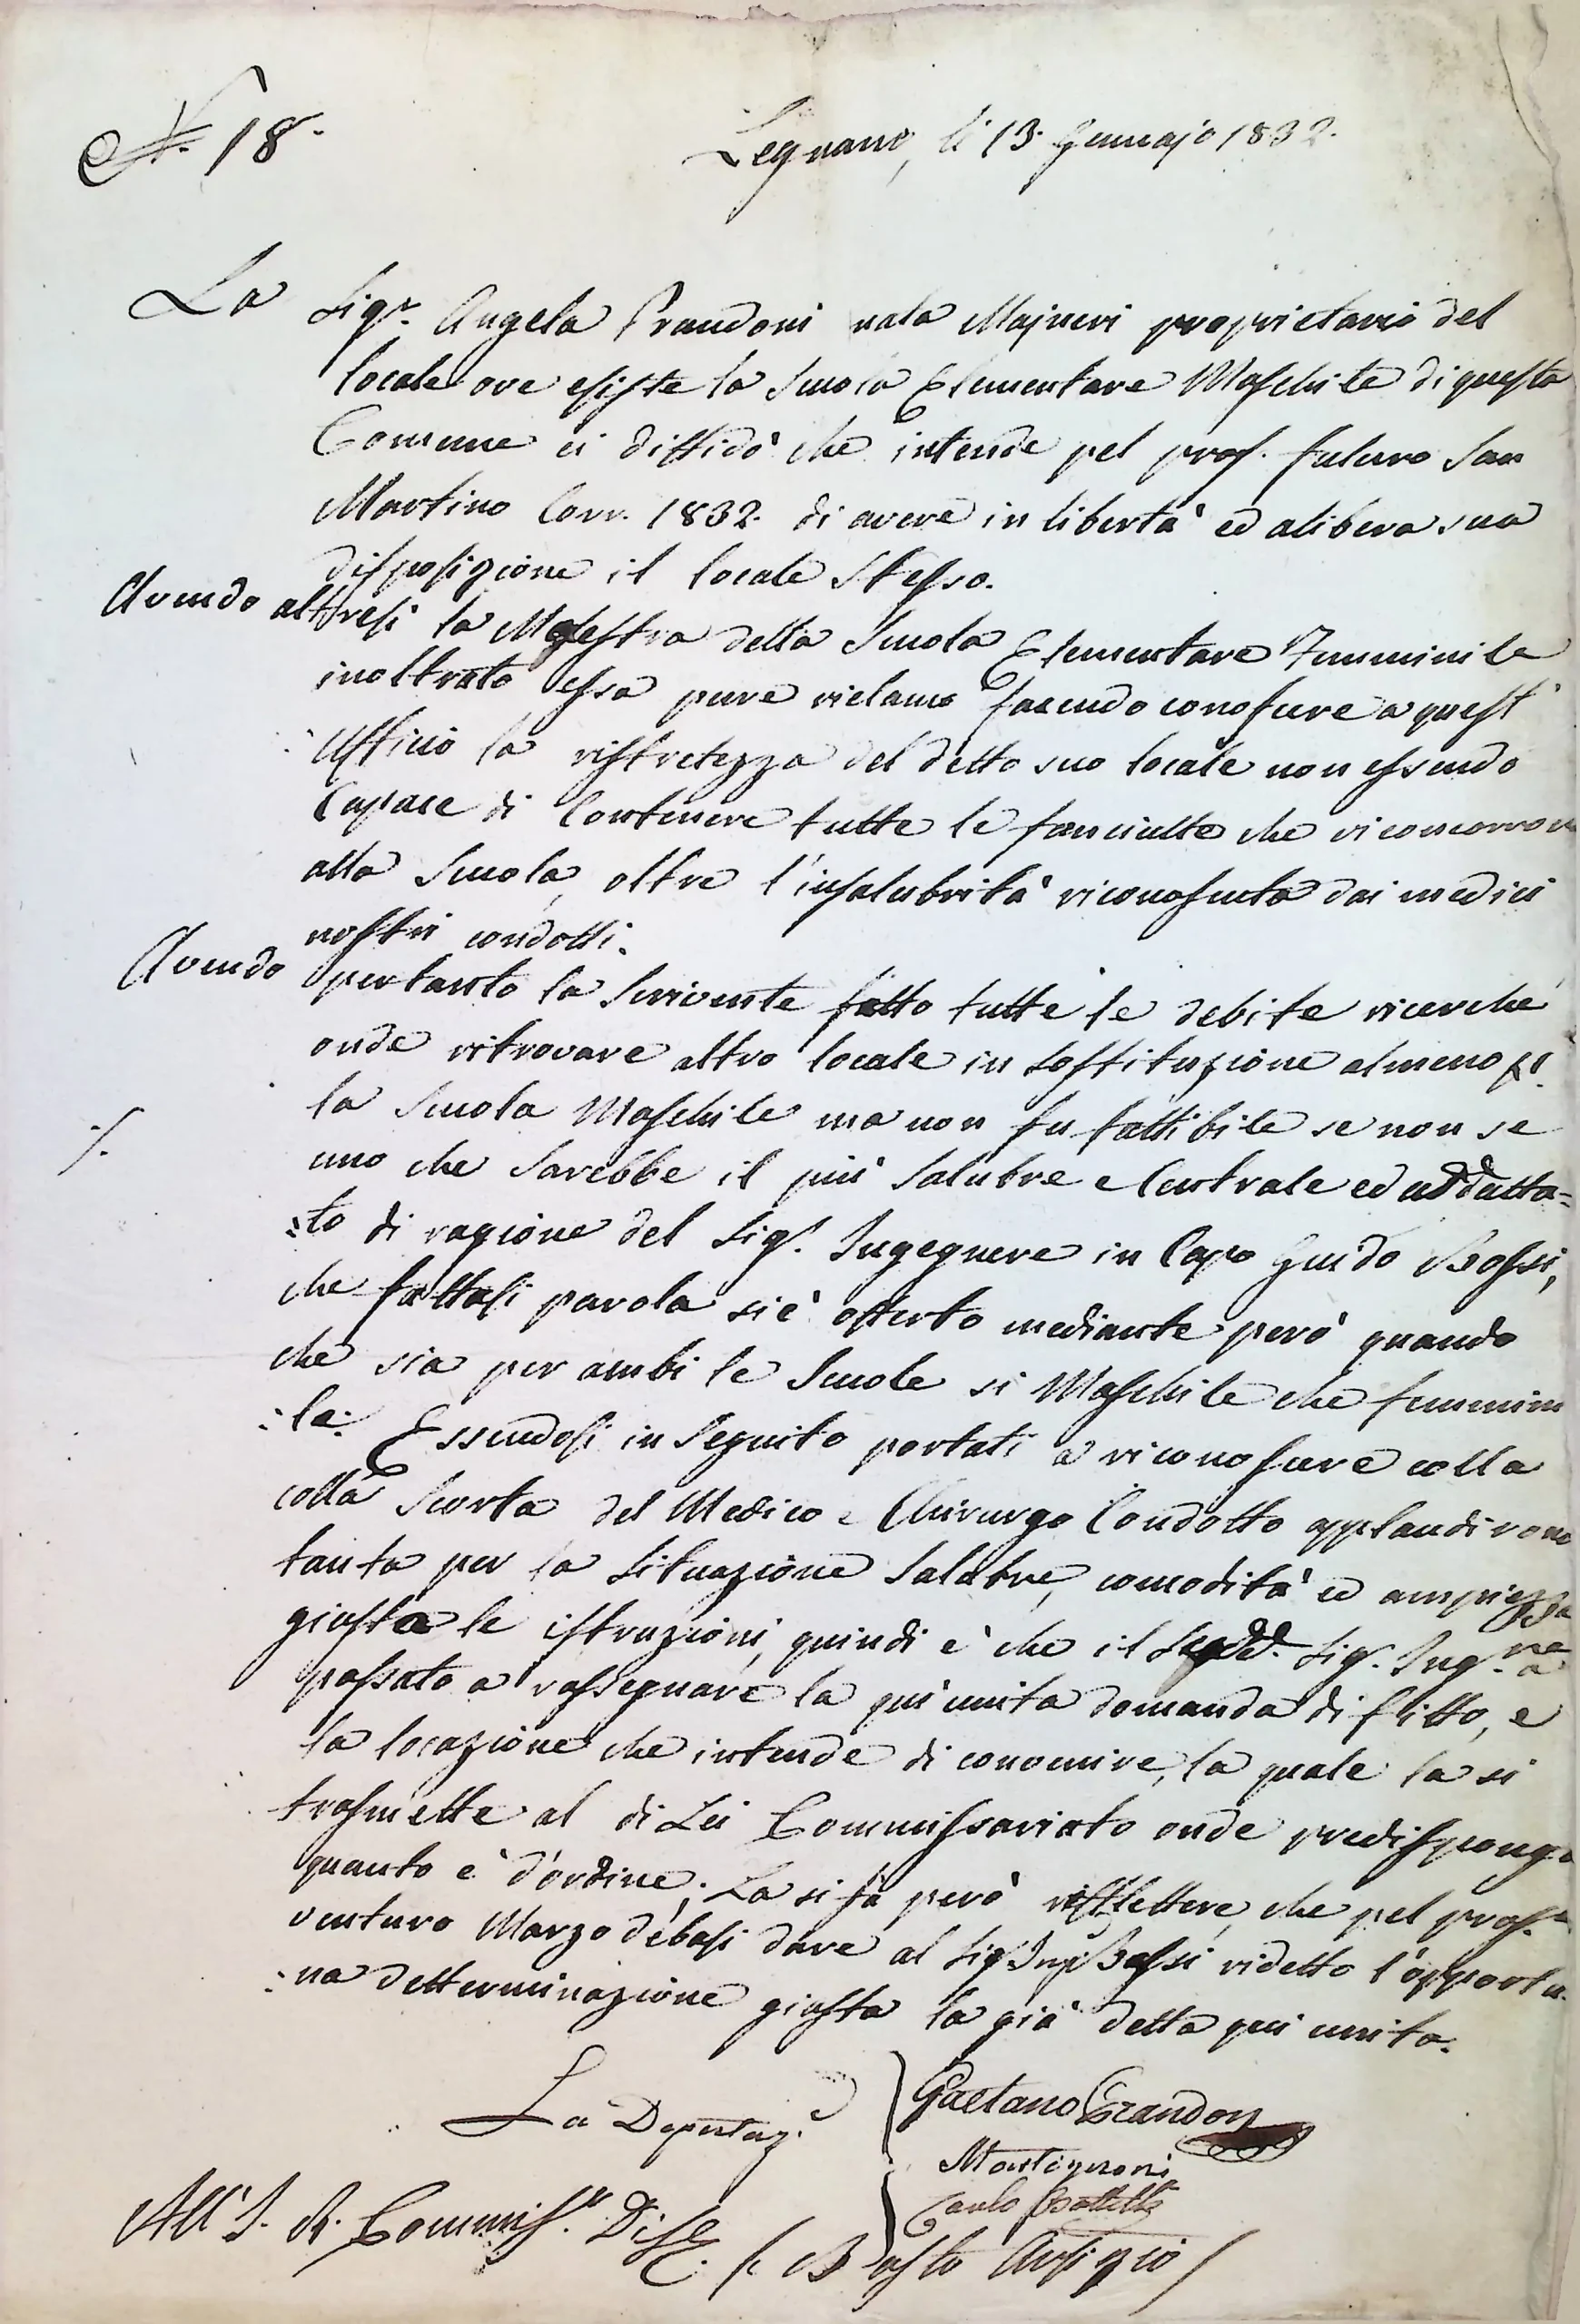 N. 18.
Legnano, li 13. Gennajo 1832.
La Sigr. Angela Prandoni nata Majneri proprietaria del
locale ove esiste la Scuola Elementare Maschile di questo
Comune ci diffidò che intende pel pros. futuro San
Martino Corr. 1832. di avere in libertà ed a libera sua
disposizione il locale stesso.
Avendo altresi la Maestra della Scuola Elementare Femminile
inoltrato essa pure riclamo facendo conoscere a quest'
Ufficio la ristretezza del detto suo locale non essendo
Capace di Contenere tutte le fanciulle che vi concorron
alla Scuola, oltre l'insalubrità riconosciuta dai medici
nostri condotti.
Avendo pertanto la Scrivente fatto tutte le debite ricerche
onde ritrovare altro locale in sostituzione almeno pr.
la Scuola Maschile ma non fu fattibile se non se
uno che Sarebbe il più Salubre e Centrale ed addatta=
:to di ragione del Sigr. Ingegnere in Capo Guido Bossi,
che fattasi parola si è offerto mediante però quando
che sia per ambi le Scuole si Maschile che femmini
:le: Essendosi in Seguito portati a riconoscere colla
colla Scorta del Medico e Chirurgo Condotto applaudirono
tanto per la Situazione Salubre, comodità ed ampiezza
giusta le istruzioni, quindi è che il Sudd. Sigr. Ingre. a
passato a rassegnare la qui unita domanda di fitto, e
la locazione che intende di convenire, la quale la si
trasmette al di Lei Commissariato onde predisponga
quanto è d'ordine; La si fà però riflettere, che pel pross.
venturo Marzo debasi dare al Sigr Ingr Bossi ridetto l'opportu.
:na detterminazione giusta la già detta qui unita.
La Deputaz.e
Gaetano Prandoni
Martignoni
Carlo
All' I. R. Commiss. Dis.le
(Busto Arsizio)